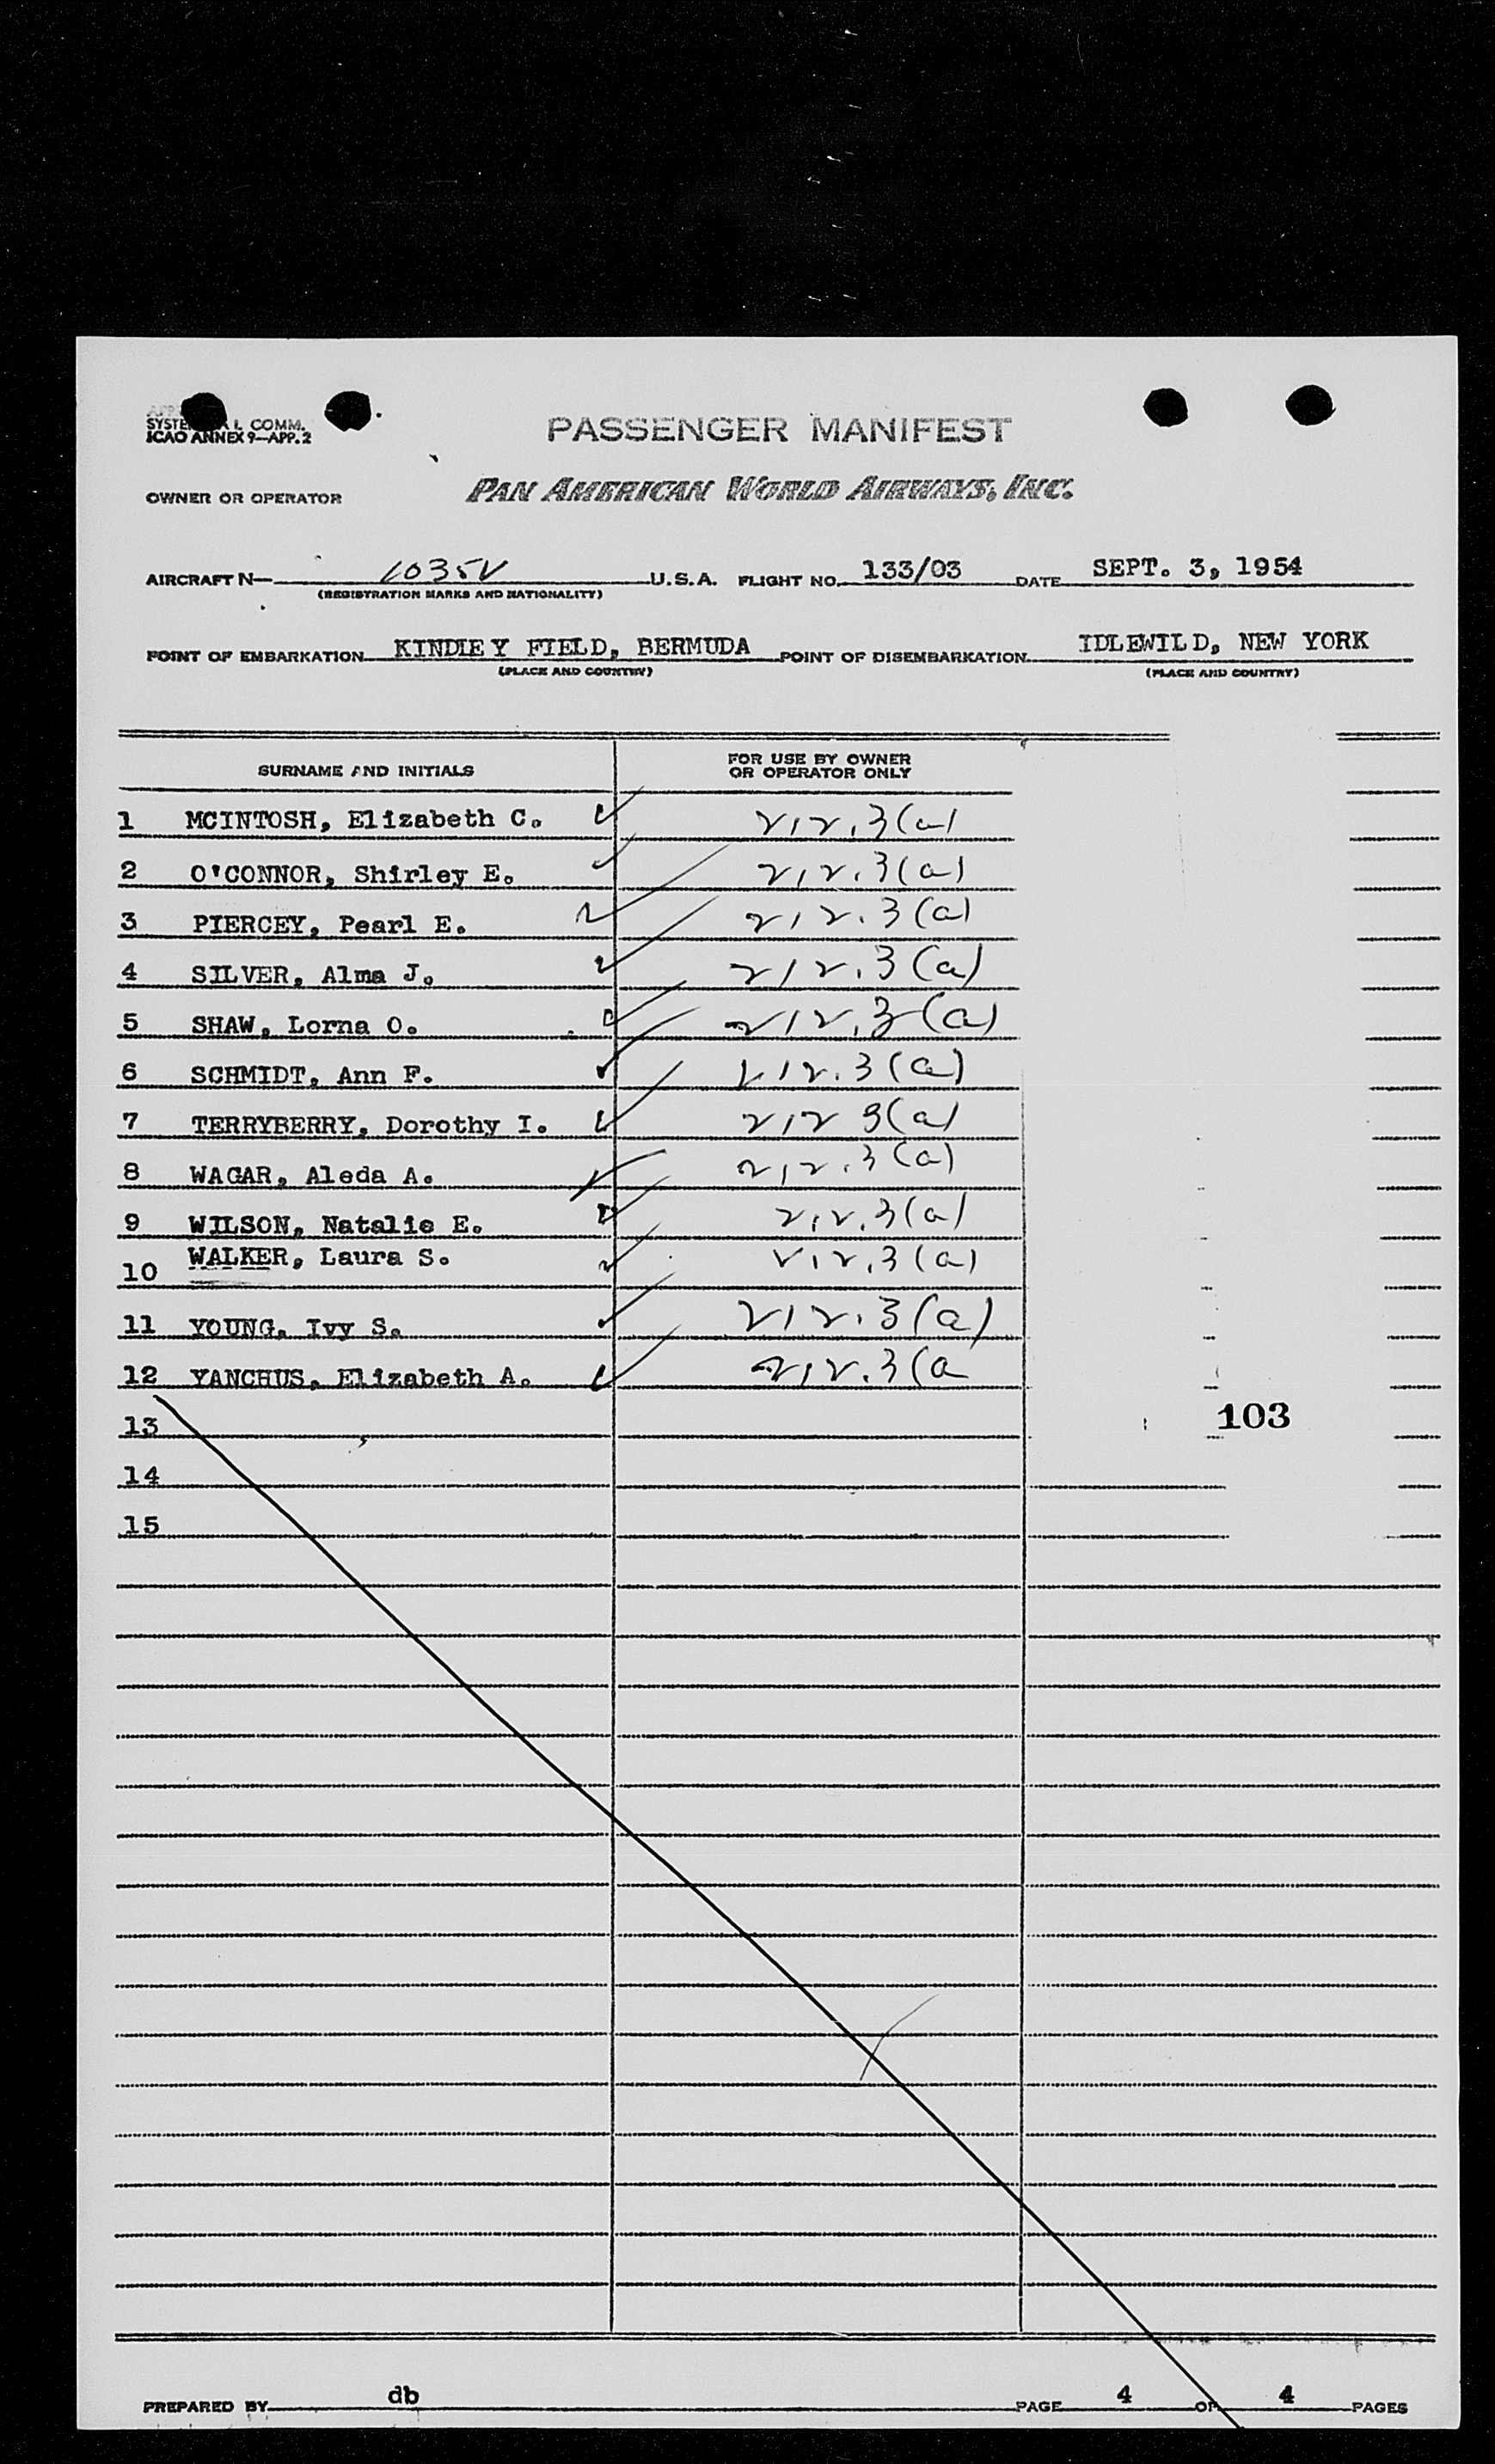 SYSTE L COMM.
ICAO ANNEX 9—APP. 2
PASSENGER MANIFEST
OWNER OR OPERATOR PAN AMERICAN WORLD AIRWAYS, INC.
AIRCRAFT N— 1035V U.S.A. FLIGHT NO. 133/03 DATE SEPT. 3, 1954
(REGISTRATION MARKS AND NATIONALITY)
POINT OF EMBARKATION KINDLEY FIELD, BERMUDA POINT OF DISEMBARKATION IDLEWILD, NEW YORK
(PLACE AND COUNTRY) (PLACE AND COUNTRY)
SURNAME AND INITIALS FOR USE BY OWNER
OR OPERATOR ONLY
1 MCINTOSH, Elizabeth C. 212.3(a)
2 O'CONNOR, Shirley E. 212.3(a)
3 PIERCEY, Pearl E. 212.3(a)
4 SILVER, Alma J. 212.3(a)
5 SHAW, Lorna O. 212.3(a)
6 SCHMIDT, Ann F. 212.3(a)
7 TERRYBERRY, Dorothy I. 212 3(a)
8 WAGAR, Aleda A. 212.3(a)
9 WILSON, Natalie E. 212.3(a)
10 WALKER, Laura S. 212.3(a)
11 YOUNG, Ivy S. 212.3(a)
12 YANCHUS, Elizabeth A. 212.3(a
13 103
14
15
PREPARED BY db PAGE 4 OF 4 PAGES